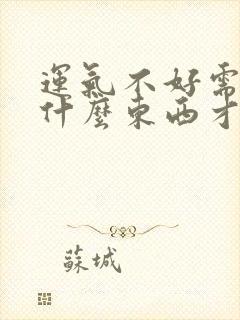 運氣不好需
什麼東西才
蘇城